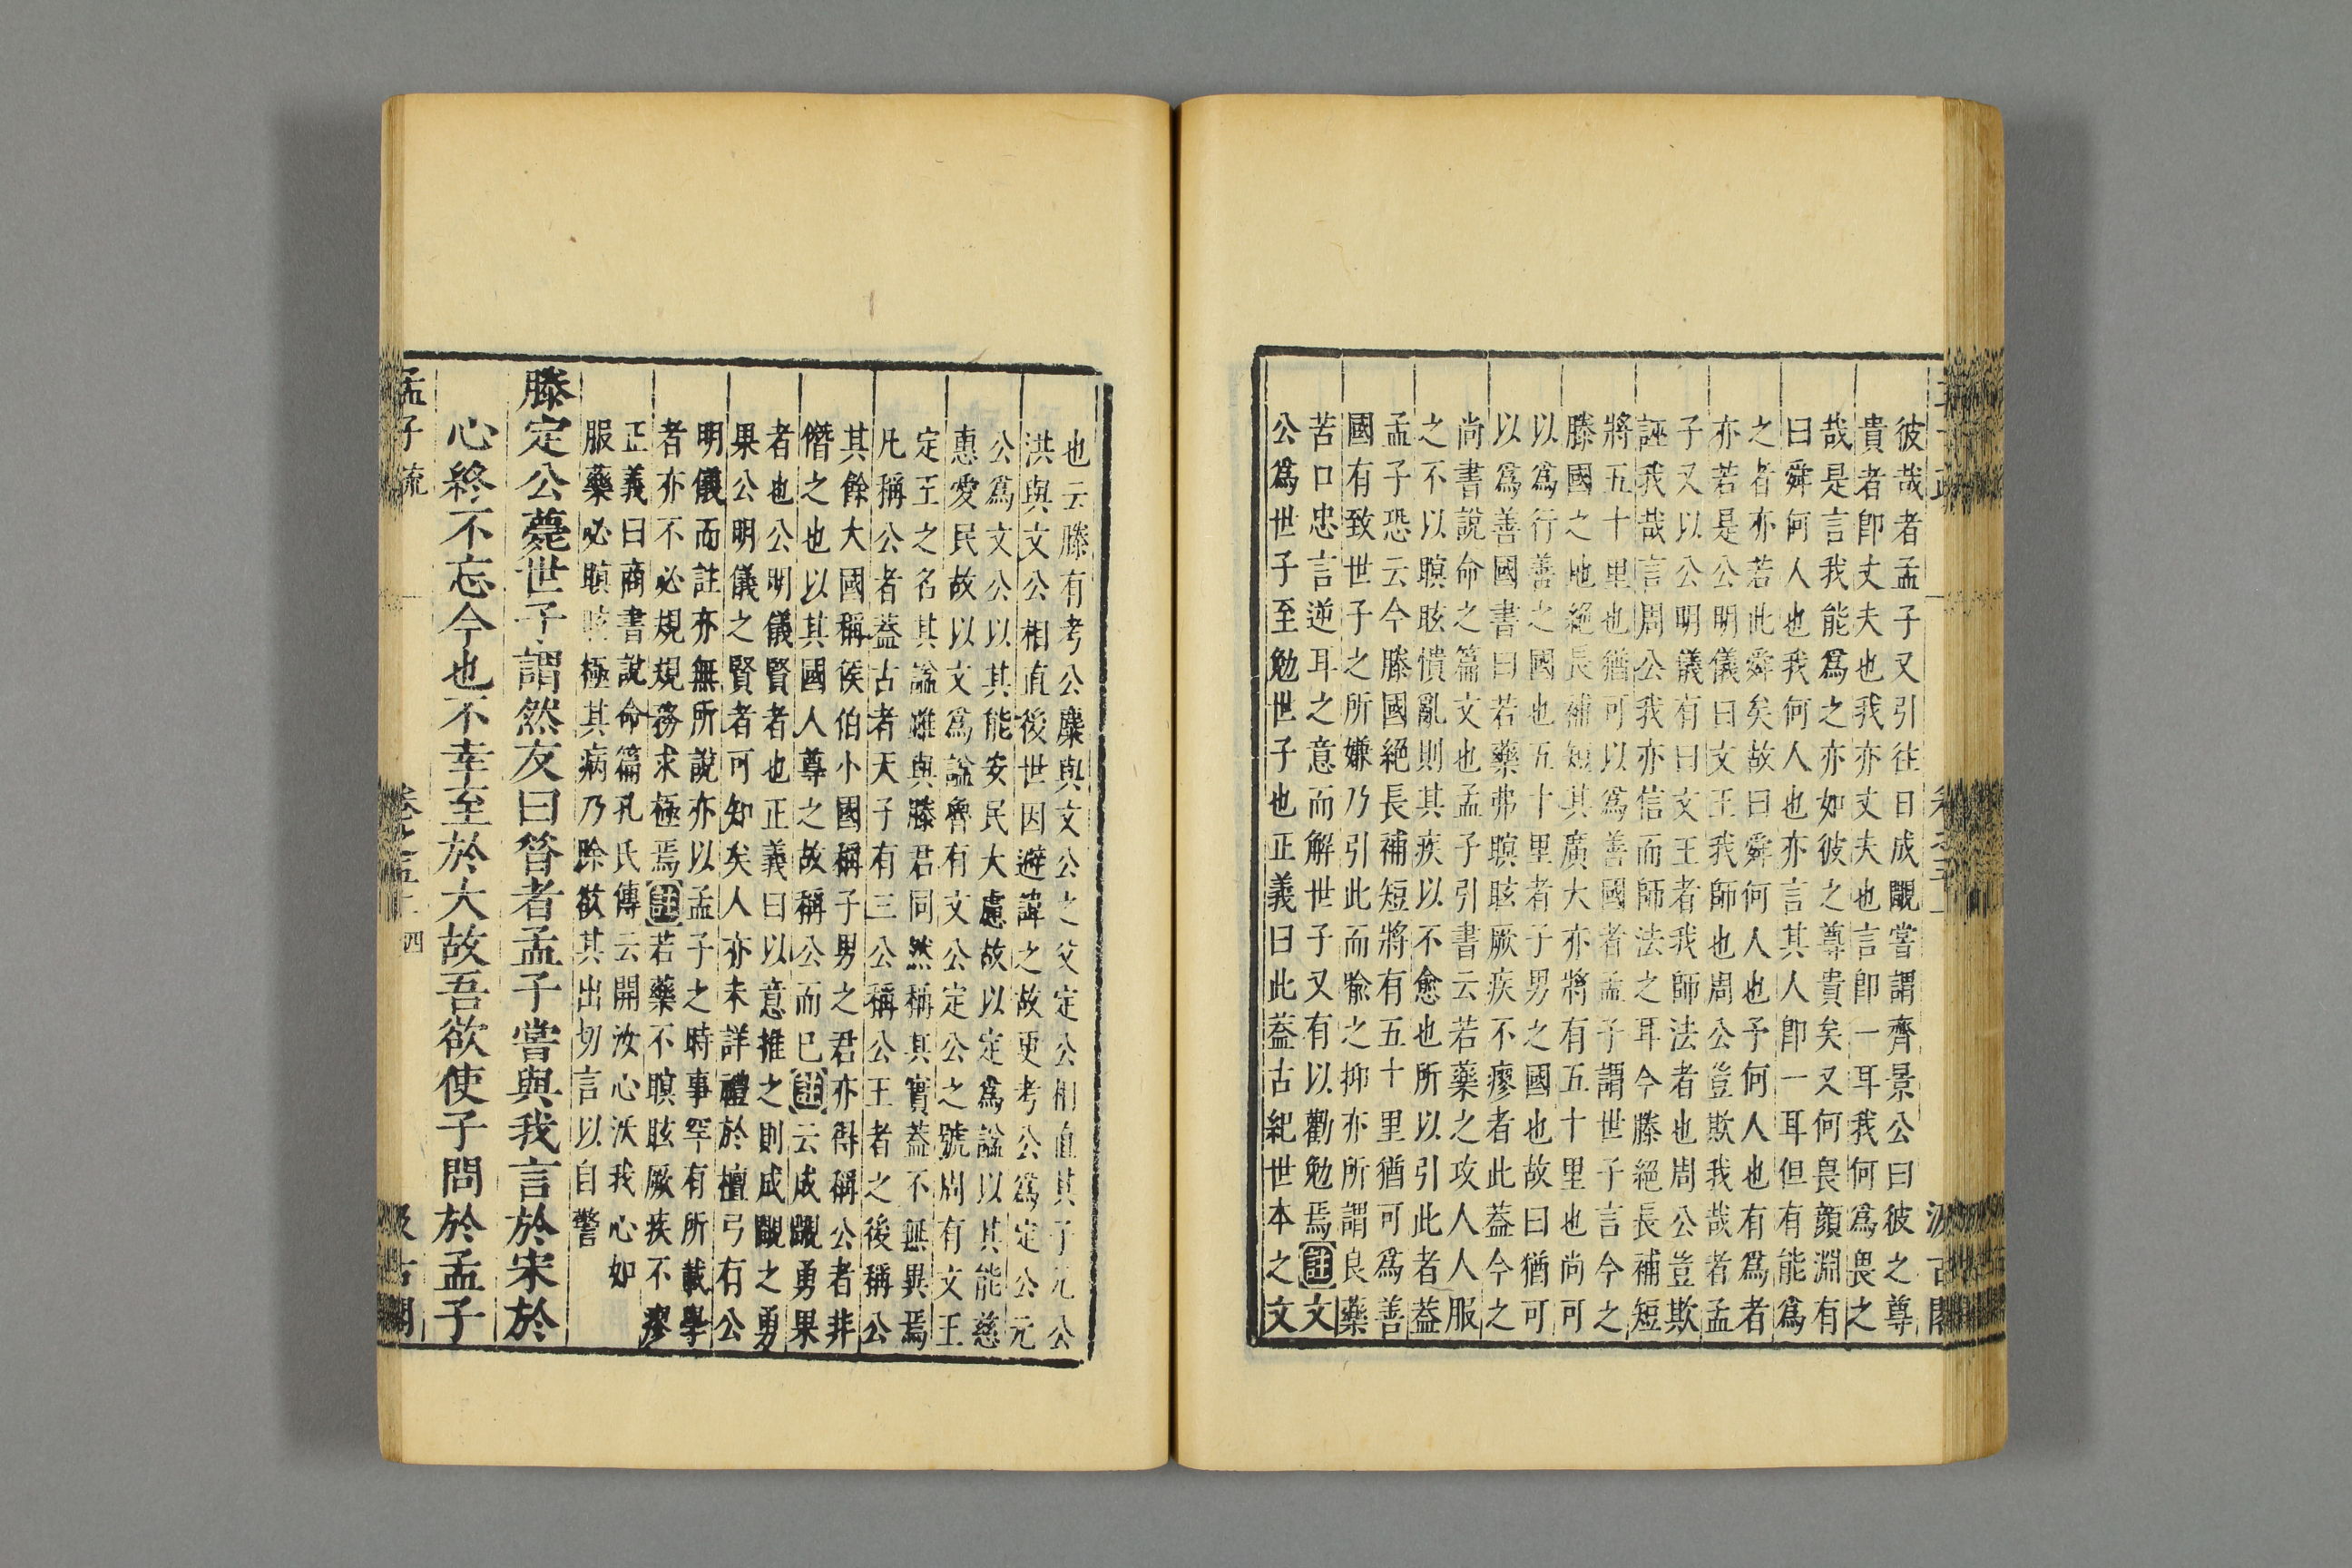 彼哉者孟子又引往日成覵嘗謂齊景公曰彼之尊
貴者卽丈夫也我亦丈夫也言卽一耳我何爲畏之
哉是言我能爲之亦如彼之尊貴矣又何畏顔淵有
曰舜何人也我何人也亦言其人卽一耳但有能爲
之者亦若此舜矣故曰舜何人也予何人也有爲者
亦若是公明儀曰文王我師也周公豈欺我哉者孟
子又以公明儀有曰文王者我師法者也周公豈欺
誣我哉言周公我亦信而師法之耳今滕絕長補短
將五十里也猶可以爲善國者孟子謂世子言今之
滕國之地絕長補短其廣大亦將有五十里也尚可
以爲行善之國也五十里者子男之國也故曰猶可
以爲善國書曰若藥弗瞑眩厥疾不瘳者此蓋今之
尚書說命之篇文也孟子引書云若藥之攻人人服
之不以瞑眩憒亂則其疾以不愈也所以引此者蓋
孟子恐云今滕國絕長補短將有五十里猶可爲善
國有致世子之所嫌乃引此而喩之抑亦所謂良藥
苦口忠言逆耳之意而解世子又有以勸勉焉註文
公爲世子至勉世子也正義曰此蓋古紀世本之文
也云滕有考公麋與文公之父定公相直其子元公
洪與文公相直後世因避諱之故更考公爲定公元
公爲文公以其能安民大慮故以定爲諡以其能慈
惠愛民故以文爲諡魯有文公定公之號周有文王
定王之名其諡雖與滕君同然稱其實蓋不無異焉
凡稱公者蓋古者天子有三公稱公王者之後稱公
其餘大國稱侯伯小國稱子男之君亦得稱公者非
僭之也以其國人尊之故稱公而已註云成覵勇果
者也公明儀賢者也正義曰以意推之則成覵之勇
果公明儀之賢者可知矣人亦未詳禮於檀弓有公
明儀而註亦無所說亦以孟子之時事罕有所載學
者亦不必規規務求極焉註若藥不瞑眩厥疾不瘳
正義曰商書說命篇孔氏傳云開汝心沃我心如
服藥必瞑眩極其病乃除欲其出切言以自警
滕定公薨世子謂然友曰昝者孟子嘗與我言於宋於
心終不忘今也不幸至於大故吾欲使子問於孟子
孟子疏
四